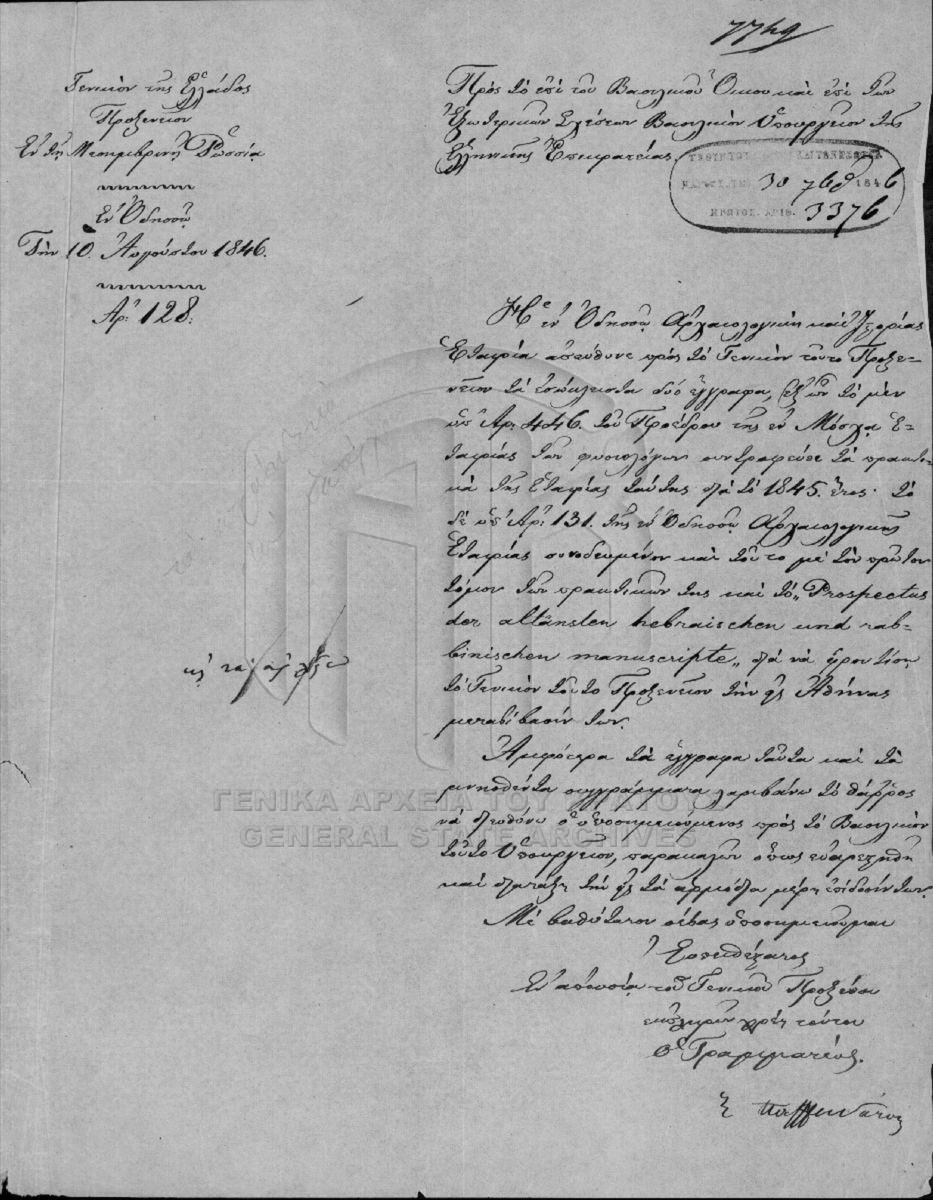 7749
Γενικὸν τῆς Ἑλλάδος
Προξενεῖον
Ἐν τῇ Μεσημβρινῇ Ῥωσσίᾳ
Ἐν Ὀδησσῷ
Τὴν 10. Αὐγούστου 1846.
Ἀρ: 128:
Πρὸς τὸ ἐπὶ τοῦ Βασιλικοῦ Οἴκου καὶ ἐπὶ τῶν
Ἐξωτερικῶν Σχέσεων Βασιλικὸν Ὑπουργεῖον τῆς
Ἑλληνικῆς Ἐπικρατείας.
30 7bρ 1846
ΠΡΩΤΟΚ. ΑΡΙΘ. 3376
Ἡ ἐν Ὀδησσῷ Ἀρχαιολογικὴ καὶ Ἱστορίας
Ἑταιρία ἀπεύθυνε πρὸς τὸ Γενικὸν τοῦτο Προξε-
νεῖον τὰ ἐσώκλειστα δύο ἔγγραφα, ἐξ ὧν τὸ μὲν
ὑπ' Ἀρ: 446. τοῦ Προέδρου τῆς ἐν Μόσχᾳ Ἑ-
ταιρίας τῶν φυσιολόγων συντροφεύει τὰ πρακτι-
κὰ τῆς Ἑταιρίας ταύτης διὰ τὸ 1845. ἔτος· τὸ
δὲ ὑπ' Ἀρ: 131. τῆς ἐν Ὀδησσῷ Ἀρχαιολογικῆς
Ἑταιρίας συνοδευμένον καὶ τοῦτο μὲ τὸν πρῶτον
τόμον τῶν πρακτικῶν της καὶ τὸ „Prospectus
der altänsten hebraischen und rab-
binischen manuscripte„ διὰ νὰ φροντίσῃ
τὸ Γενικὸν τοῦτο Προξενεῖον τὴν εἰς Ἀθήνας
μεταβίβασίν των.
Ἀμφότερα τὰ ἔγγραφα ταῦτα καὶ τὰ
μνησθέντα συγγράμματα λαμβάνω τὸ θάῤῥος
νὰ διευθύνω ὁ ὑποσημειούμενος πρὸς τὸ Βασιλικὸν
τοῦτο Ὑπουργεῖον, παρακαλῶν ὅπως εὐαρεστηθῇ
καὶ διατάξῃ τὴν εἰς τὰ ἁρμόδια μέρη ἐπίδοσίν των.
Μὲ βαθύτατον σέβας ὑποσημειοῦμαι
Εὐπειθέστατος
Ἐν ἀπουσίᾳ τοῦ Γενικοῦ Προξένου
ἐκπληρῶν χρέη τούτου
ὁ Γραμματεύς.
ΓΕΝΙΚΑ ΑΡΧΕΙΑ ΤΟΥ ΚΡΑΤΟΥΣ
GENERAL STATE ARCHIVES